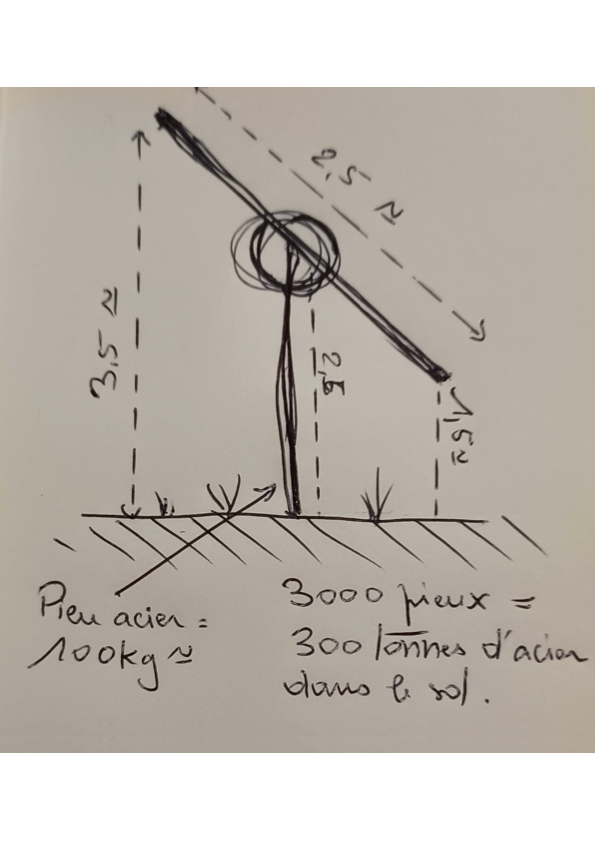 2,5 ≈
3,5 ≈
2,5
1,5 ≈
Pieu acier =
100kg ≈
3000 pieux =
300 tonnes d'acier
dans le sol.